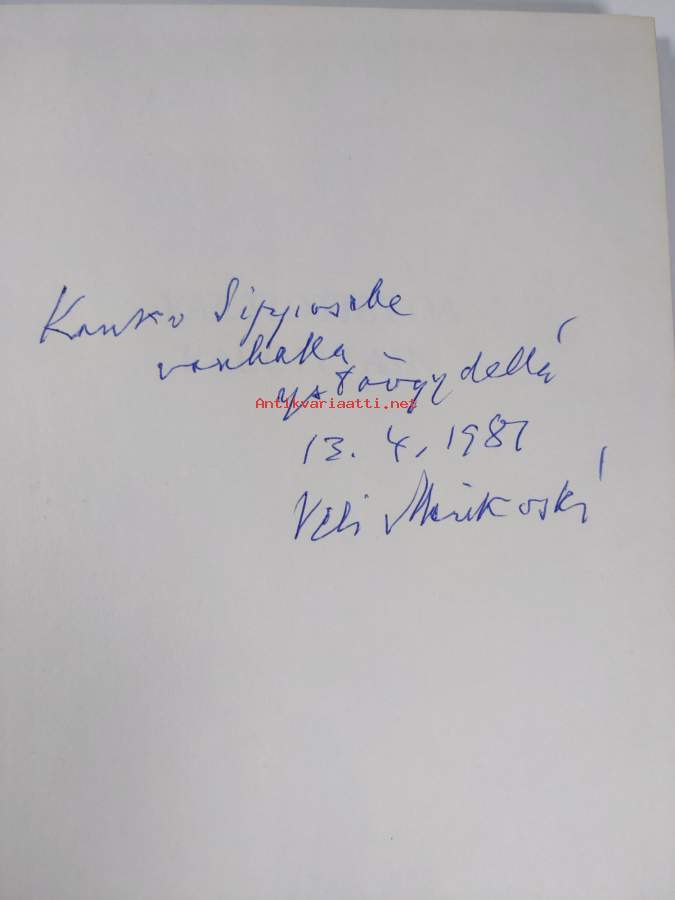 Kauko Sipposelle
vanhalla
ystävyydellä
Antikvariaatti.net
13.4.1987
Veli Merikoski